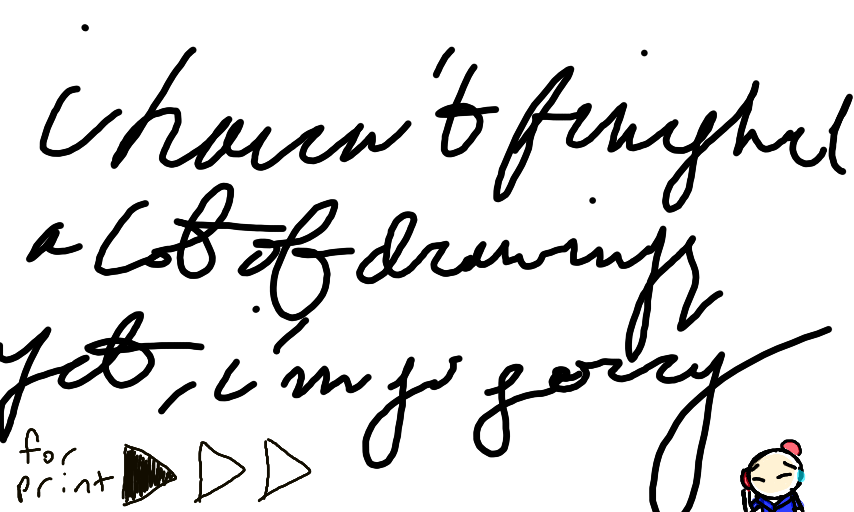 i haven't finished
a lot of drawings
yet, i'm so sorry
for
print